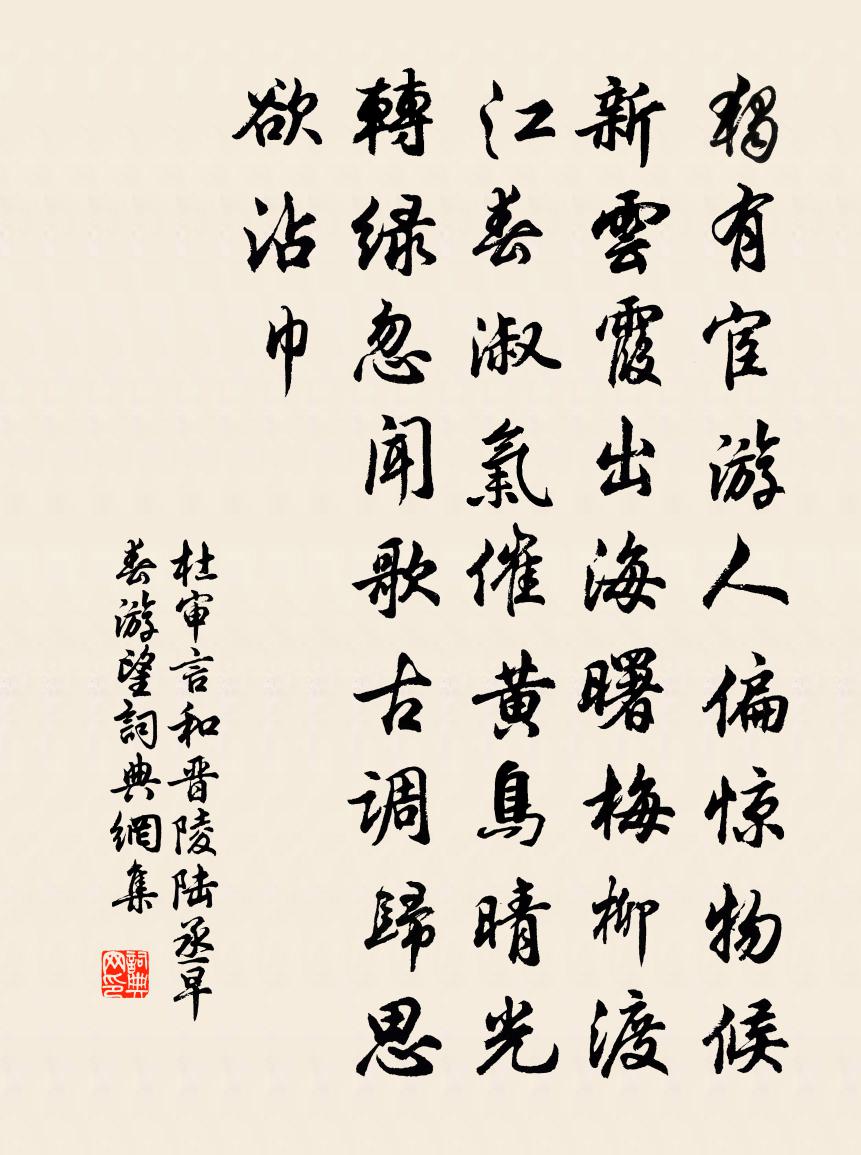 獨有宦游人偏惊物候
新雲霞出海曙梅柳渡
江春淑氣催黃鳥晴光
轉緑忽聞歌古調歸思
欲沾巾
杜审言和晋陵陆丞早
春游望詞典網集
詞典
网印